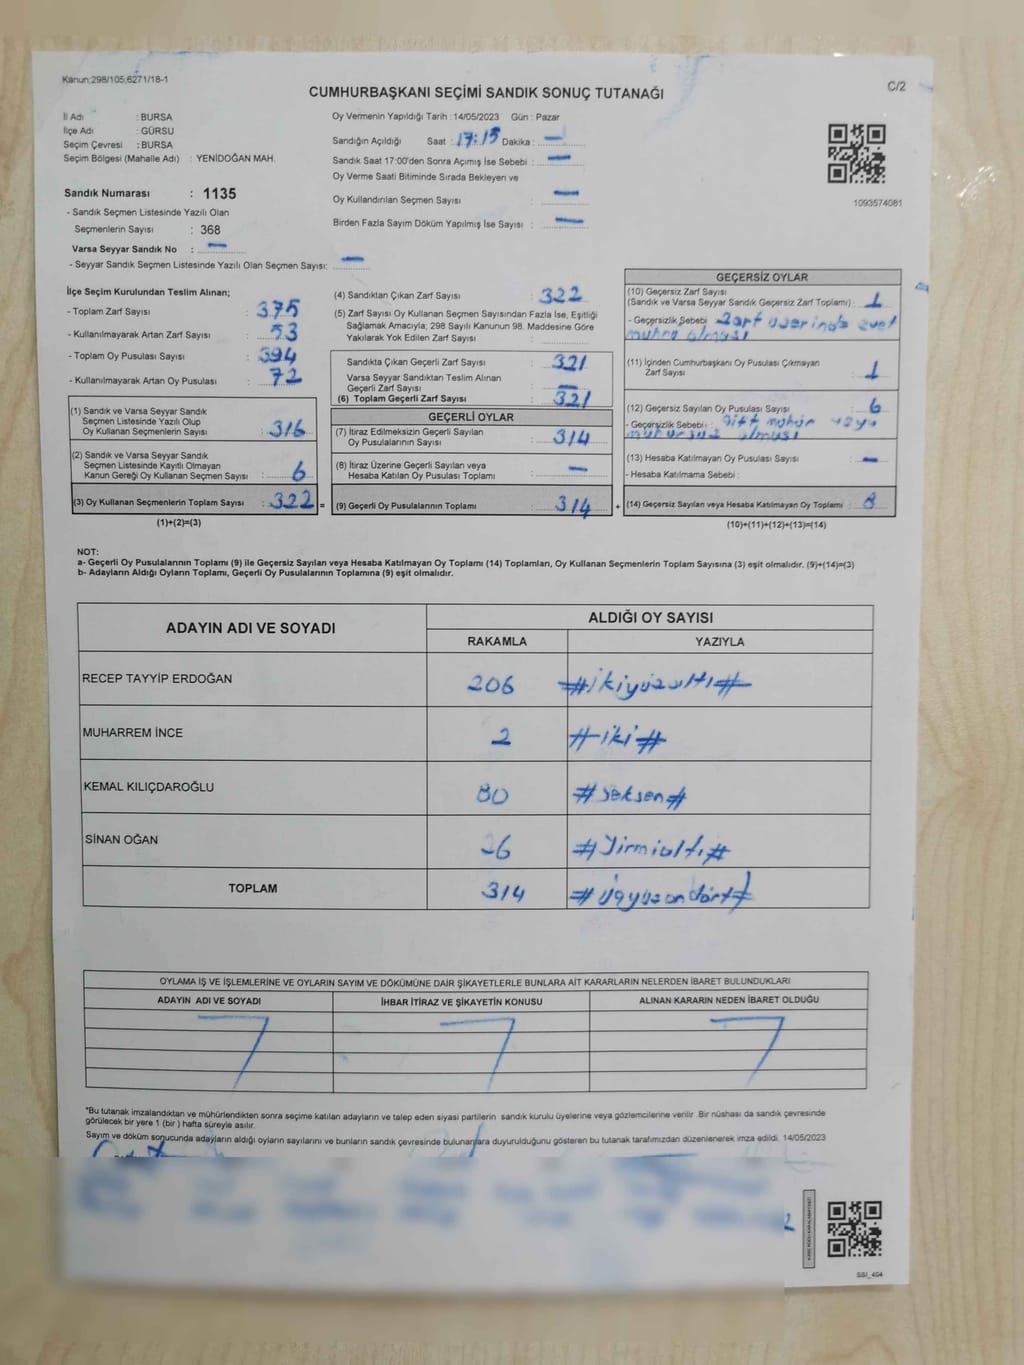 Kanun:298/105;6271/18-1
C/2
CUMHURBAŞKANI SEÇİMİ SANDIK SONUÇ TUTANAĞI
İl Adı : BURSA
İlçe Adı : GÜRSU
Seçim Çevresi : BURSA
Seçim Bölgesi (Mahalle Adı) : YENİDOĞAN MAH.
Sandık Numarası : 1135
- Sandık Seçmen Listesinde Yazılı Olan
Seçmenlerin Sayısı : 368
Varsa Seyyar Sandık No : —
- Seyyar Sandık Seçmen Listesinde Yazılı Olan Seçmen Sayısı: —
Oy Vermenin Yapıldığı Tarih : 14/05/2023 Gün : Pazar
Sandığın Açıldığı Saat : 17:15 Dakika : —
Sandık Saat 17:00'den Sonra Açımış İse Sebebi : —
Oy Verme Saati Bitiminde Sırada Bekleyen ve
Oy Kullandırılan Seçmen Sayısı : —
Birden Fazla Sayım Döküm Yapılmış İse Sayısı : —
1093574081
İlçe Seçim Kurulundan Teslim Alınan;
- Toplam Zarf Sayısı : 375
- Kullanılmayarak Artan Zarf Sayısı : 53
- Toplam Oy Pusulası Sayısı : 394
- Kullanılmayarak Artan Oy Pusulası : 72
(1) Sandık ve Varsa Seyyar Sandık
Seçmen Listesinde Yazılı Olup
Oy Kullanan Seçmenlerin Sayısı : 316
(2) Sandık ve Varsa Seyyar Sandık
Seçmen Listesinde Kayıtlı Olmayan
Kanun Gereği Oy Kullanan Seçmen Sayısı : 6
(3) Oy Kullanan Seçmenlerin Toplam Sayısı : 322 =
(1)+(2)=(3)
(4) Sandıktan Çıkan Zarf Sayısı : 322
(5) Zarf Sayısı Oy Kullanan Seçmen Sayısından Fazla İse, Eşitliği
Sağlamak Amacıyla; 298 Sayılı Kanunun 98. Maddesine Göre
Yakılarak Yok Edilen Zarf Sayısı :
Sandıkta Çıkan Geçerli Zarf Sayısı : 321
Varsa Seyyar Sandıktan Teslim Alınan
Geçerli Zarf Sayısı : —
(6) Toplam Geçerli Zarf Sayısı : 321
GEÇERLİ OYLAR
(7) İtiraz Edilmeksizin Geçerli Sayılan
Oy Pusulasının Sayısı : 314
(8) İtiraz Üzerine Geçerli Sayılan veya
Hesaba Katılan Oy Pusulası Toplamı : —
(9) Geçerli Oy Pusulalarının Toplamı : 314 +
GEÇERSİZ OYLAR
(10) Geçersiz Zarf Sayısı
(Sandık ve Varsa Seyyar Sandık Geçersiz Zarf Toplamı) : 1
- Geçersizlik Sebebi : Zarf üzerinde evet
muhrü olması
(11) İçinden Cumhurbaşkanı Oy Pusulası Çıkmayan
Zarf Sayısı : 1
(12) Geçersiz Sayılan Oy Pusulası Sayısı : 6
- Geçersizlik Sebebi : Çift mühür veya
mühürsüz olması
(13) Hesaba Katılmayan Oy Pusulası Sayısı : —
- Hesaba Katılmama Sebebi :
(14) Geçersiz Sayılan veya Hesaba Katılmayan Oy Toplamı : 8
(10)+(11)+(12)+(13)=(14)
NOT:
a- Geçerli Oy Pusulalarının Toplamı (9) ile Geçersiz Sayılan veya Hesaba Katılmayan Oy Toplamı (14) Toplamları, Oy Kullanan Seçmenlerin Toplam Sayısına (3) eşit olmalıdır. (9)+(14)=(3)
b- Adayların Aldığı Oyların Toplamı, Geçerli Oy Pusulalarının Toplamına (9) eşit olmalıdır.
ADAYIN ADI VE SOYADI
ALDIĞI OY SAYISI
RAKAMLA YAZIYLA
RECEP TAYYİP ERDOĞAN 206 #ikiyüzaltı#
MUHARREM İNCE 2 #iki#
KEMAL KILIÇDAROĞLU 80 #seksen#
SİNAN OĞAN 26 #Yirmialtı#
TOPLAM 314 #üçyüzondört#
OYLAMA İŞ VE İŞLEMLERİNE VE OYLARIN SAYIM VE DÖKÜMÜNE DAİR ŞİKAYETLERLE BUNLARA AİT KARARLARIN NELERDEN İBARET BULUNDUKLARI
ADAYIN ADI VE SOYADI İHBAR İTİRAZ VE ŞİKAYETİN KONUSU ALINAN KARARIN NEDEN İBARET OLDUĞU
*Bu tutanak imzalandıktan ve mühürlendikten sonra seçime katılan adayların ve talep eden siyasi partilerin sandık kurulu üyelerine veya gözlemcilerine verilir. Bir nüshası da sandık çevresinde
görülecek bir yere 1 (bir) hafta süreyle asılır.
Sayım ve döküm sonucunda adayların aldığı oyların sayılarını ve bunların sandık çevresinde bulunanlara duyurulduğunu gösteren bu tutanak tarafımızdan düzenlenerek imza edildi. 14/05/2023
SSİ_404